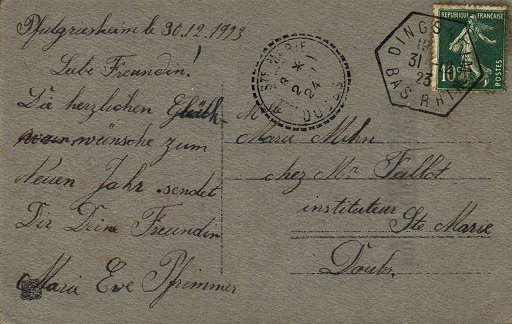 Pfulgriesheim le 30.12.1923
Liebe Freundin!
Die herzlichen Glück-
wünsche zum
Neuen Jahr sendet
Dir Deine Freundin
Maria Eve Pfrimmer
Mlle
Maria Mehn
chez Mr Vallot
instituteur
Ste Marie
Doubs
STE MARIE
DOUBS
DINGS
31
23
BAS RHIN
REPUBLIQUE FRANÇAISE
10c
POSTES